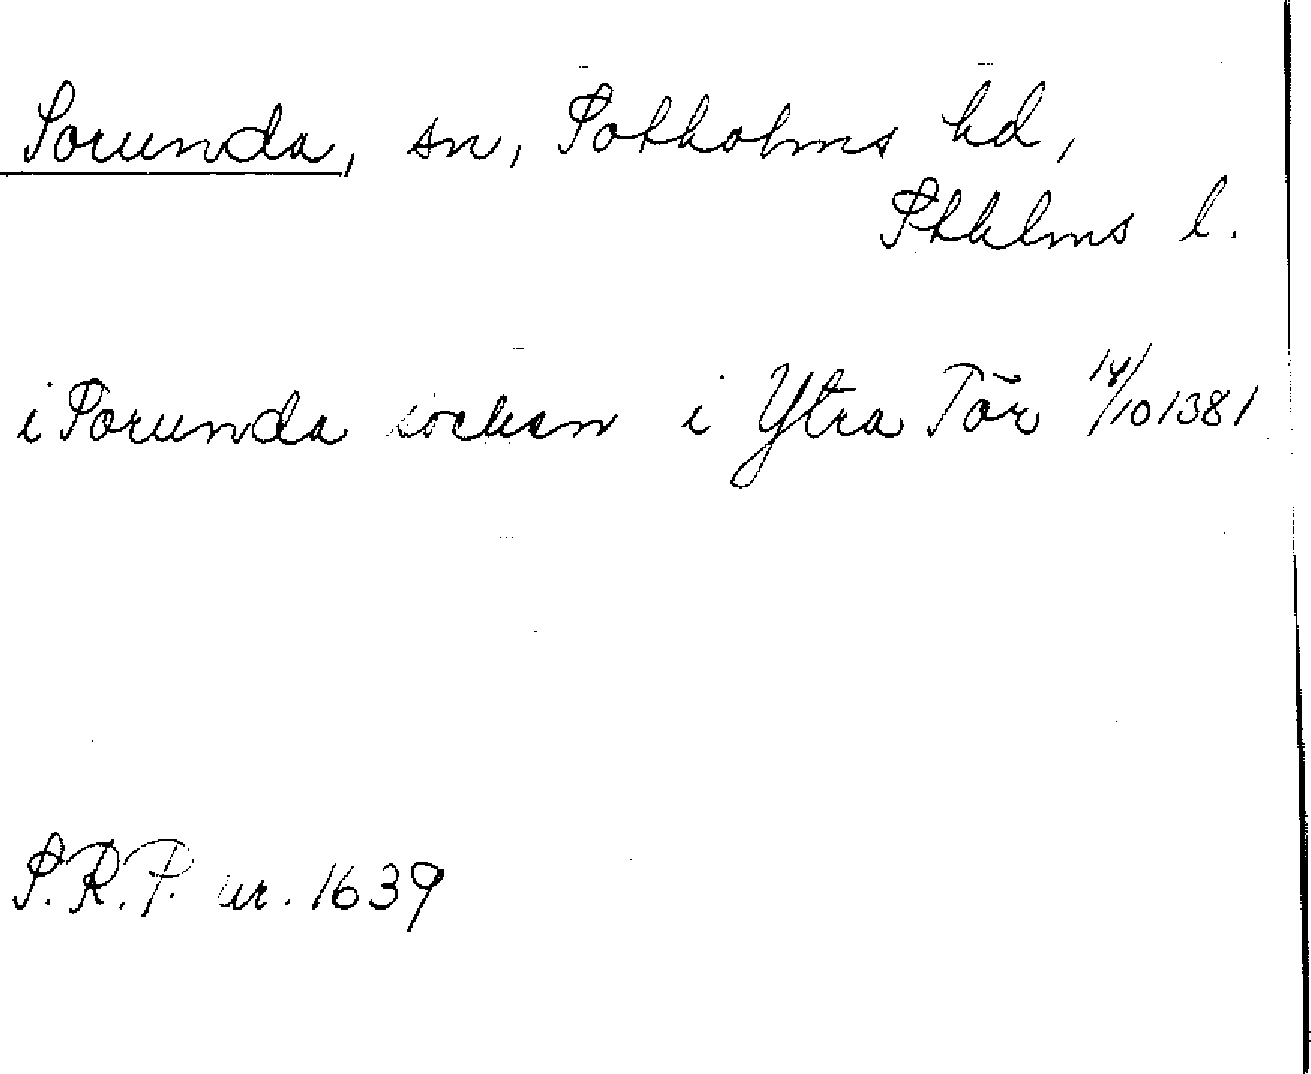 Sorunda, sn, Sotholms hd,
Sthlms l.
i Sorunda sockan i Ytra Tör 14/10 1381
S.R.P. nr. 1639